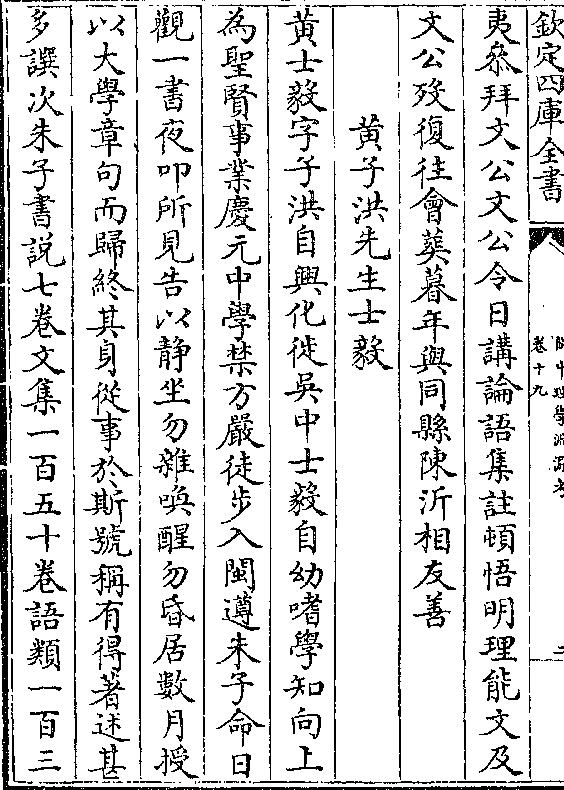 欽定四庫全書
卷十九
夷叅拜文公文公令日講論語集註頓悟明理能文及
文公殁復往會葬暮年與同縣陳沂相友善
黄子洪先生士毅
黄士毅字子洪自興化徙吳中士毅自幼嗜學知向上
為聖賢事業慶元中學禁方嚴徒步入閩遵朱子命日
觀一書夜叩所見告以静坐勿雜喚醒勿昏居數月授
以大學章句而歸終其身從事於斯號稱有得著述甚
多譔次朱子書説七卷文集一百五十卷語類一百三